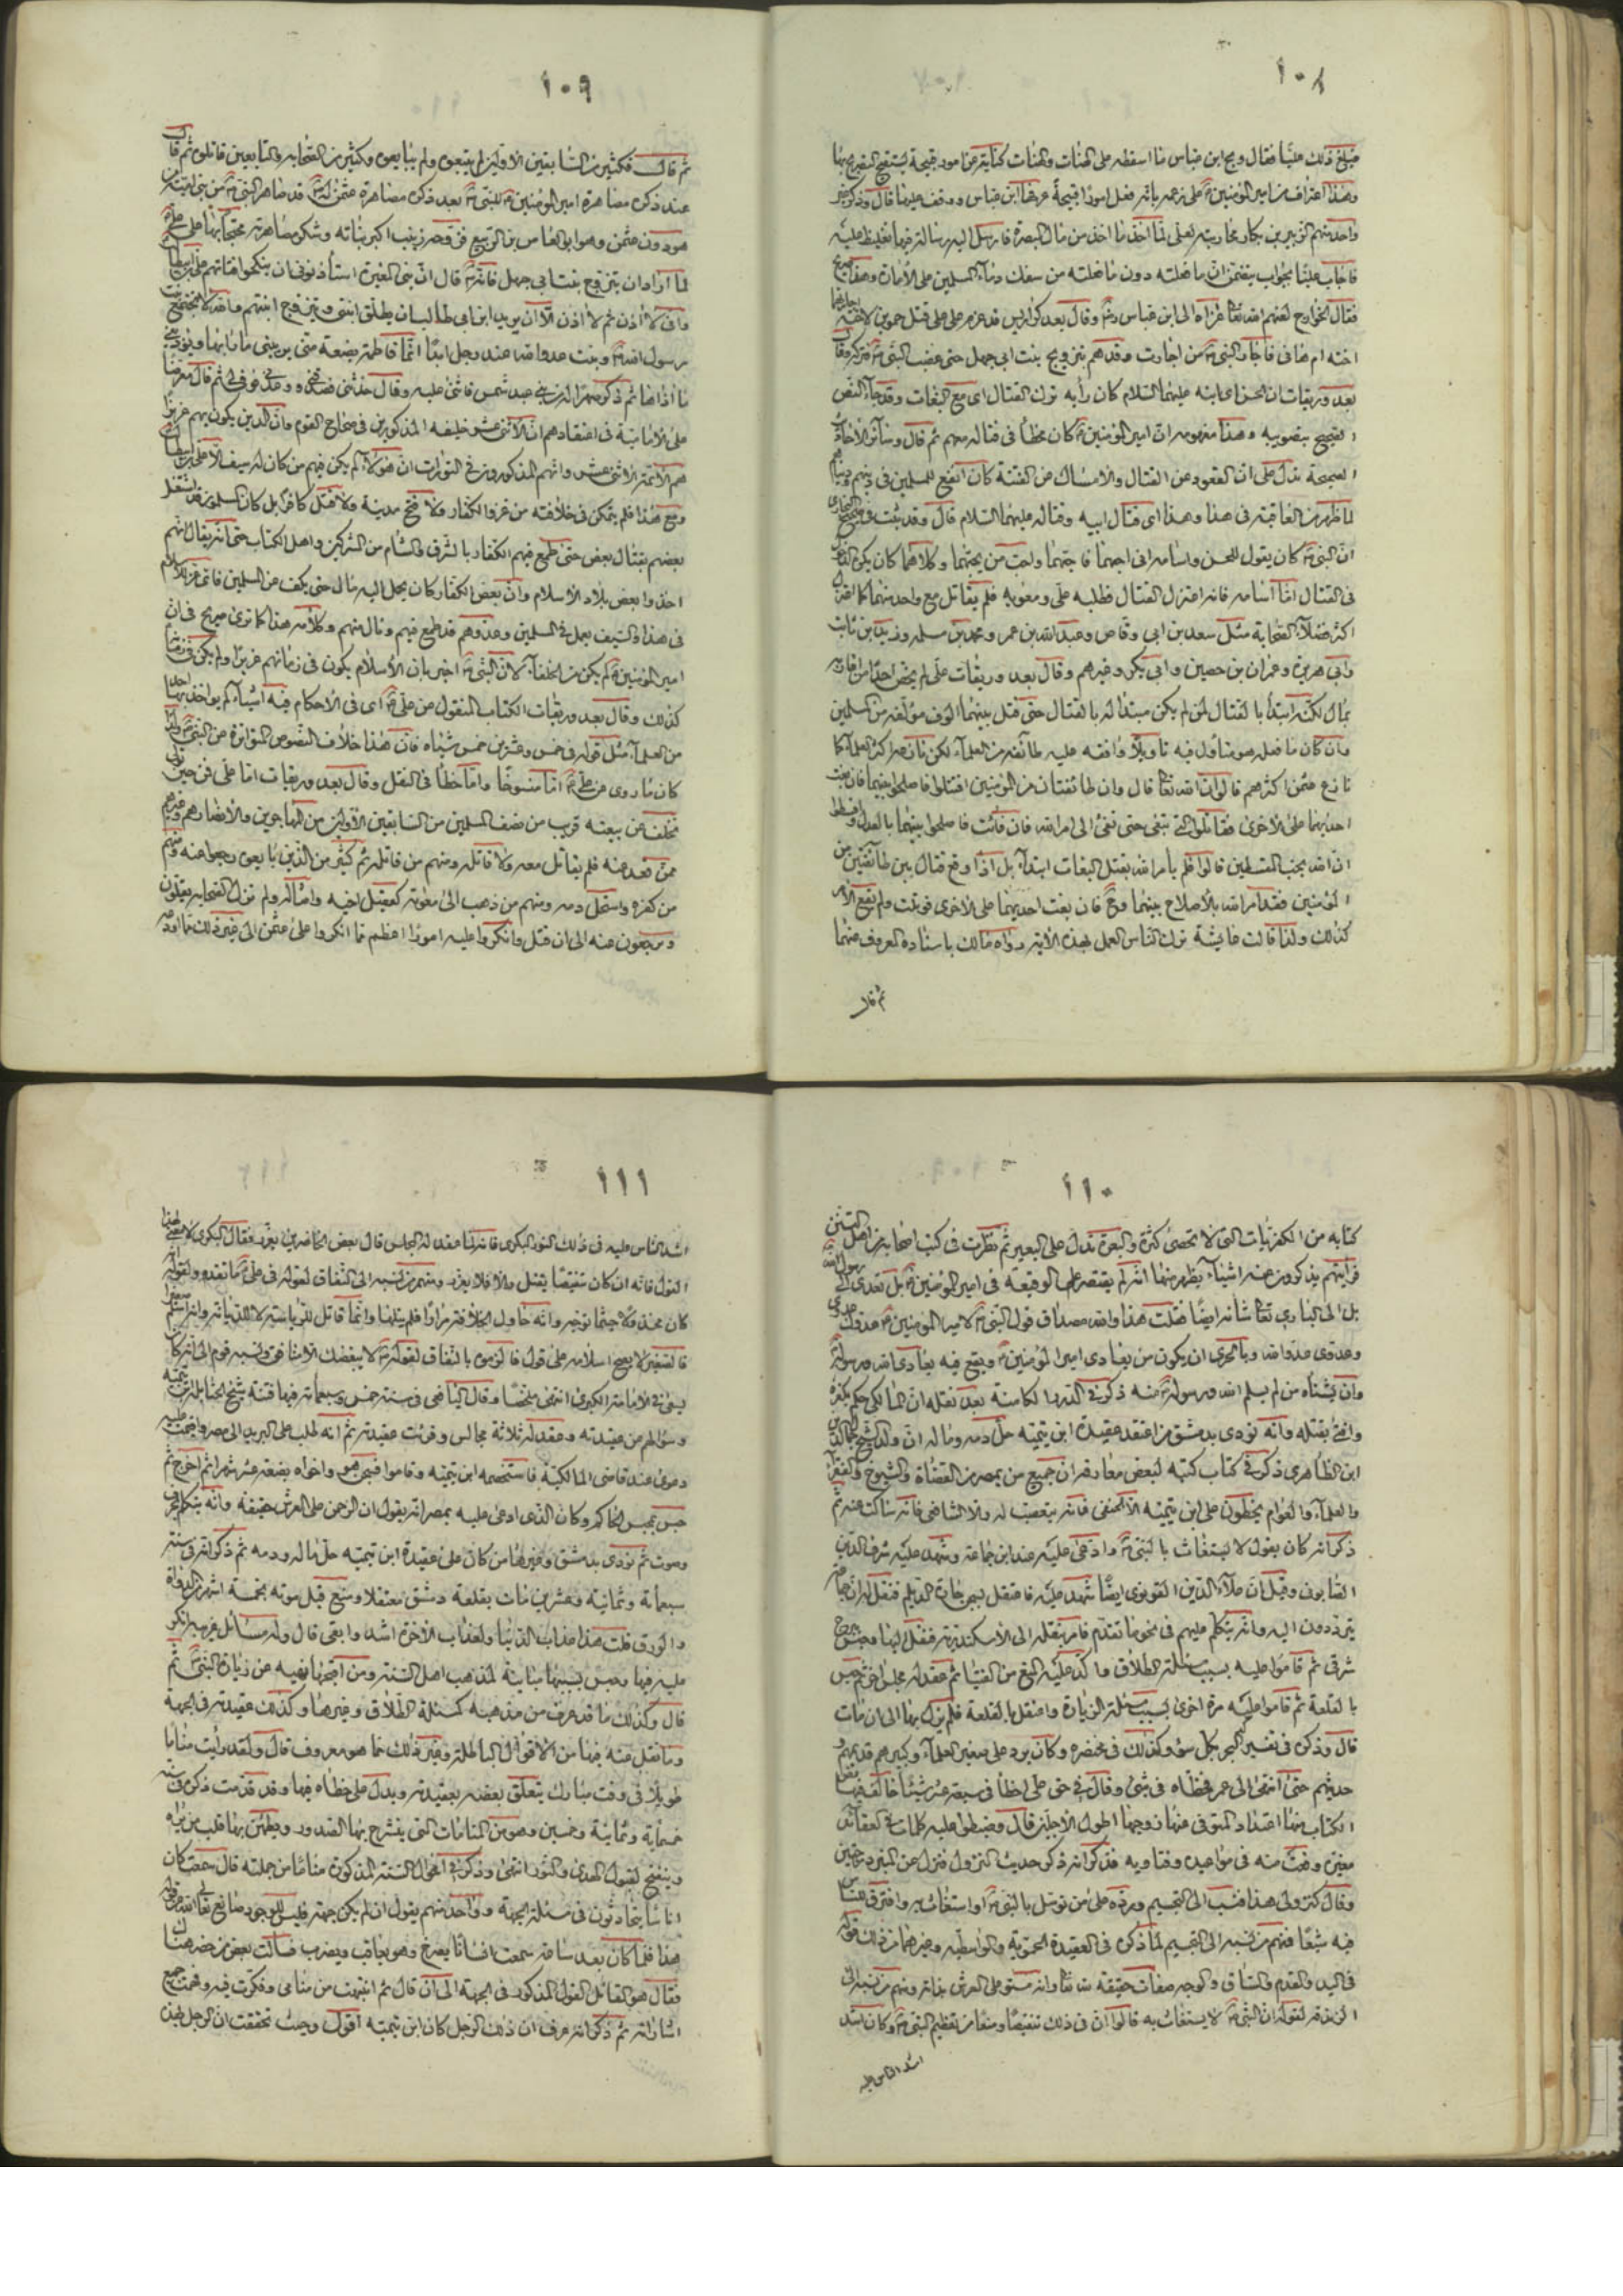 ١٠٨
فبلغ ذلك عليا فقال ويح ابن عباس ما اسقطه على الهنات والهنات كناية عن امور قبيحة يستقبح التصريح بها
وهذا اعتراف من امير المؤمنين على زعمه بانه فعل امورا قبيحة عرفها ابن عباس ووقف عليها قال وذكر غير
واحد منهم الزبير بن بكار مجاوبته لعلي لما اخذ ما اخذ من مال البصرة فارسل اليه رسالة فيها تغليظ عليه
فاجاب عليا بجواب يتضمن ان ما فعلته دون ما فعلته من سفك دماء المسلمين على الامارة
بعد وريقات ان الحسن ابنه عليهما السلام كان رأيه ترك القتال اي مع البغات وقد جاء النص
الصحيح بتصويبه وهذا مفهومه ان امير المؤمنين كان مخطأ في قتاله معهم ثم قال وسائر الاحاديث
الصحيحة تدل على ان القعود عن القتال والامساك عن الفتنة كان انفع للمسلمين في دينهم ودنياهم
لما ظهر من العاقبة في هذا وهذا اي قتال ابيه وقتاله عليهما السلام قال وقد ثبت في صحيح البخاري
ان النبي كان يقول للحسن واسامه اني احبهما فاحبهما واحب من يحبهما وكلاهما كان يكره الدخول
في القتال اما اسامه فانه اعتزل القتال فطلبه علي ومعويه فلم يقاتل مع واحد منهما كما اعتزل
اكثر فضلاء الصحابة مثل سعد بن ابي وقاص وعبد الله بن عمر ومحمد بن مسلمه وزيد بن ثابت
وابي هريرة وعمران بن حصين وابي بكرة وغيرهم وقال بعد وريقات علي لم يخص احدا من اقاربه
بمال لكنه ابتدأ بالقتال لمن لم يكن مبتدأ له بالقتال حتى قتل بينهما الوف مؤلفة من المسلمين
وان كان ما فعله هو متأول فيه تاويلا وافقه عليه طائفة من العلماء لكن نازعه اكثر العلماء كما
نازع عثمن اكثرهم قالوا ان الله تعالى قال وان طائفتان من المؤمنين اقتتلوا فاصلحوا بينهما فان بغت
احديهما على الاخرى فقاتلوا التي تبغي حتى تفئ الى امر الله فان فائت فاصلحوا بينهما بالعدل واقسطوا
ان الله يحب المقسطين قالوا فلم يأمر الله بقتل البغات ابتداء بل اذا وقع قتال بين طائفتين من
المؤمنين فقد امر الله بالاصلاح بينهما فان بغت احديهما على الاخرى قوتلت ولم يقع الامر
كذلك ولذا قالت عايشة ترك الناس العمل بهذه الاية رواه مالك باسناده المعروف عنها
ثم قال
١٠٩
ثم قال فكثير من السابقين الاولين لم يتبعوه ولم يبايعوه وكثير من الصحابه والتابعين قاتلوه ثم قال
عند ذكر مصاهرة امير المؤمنين للنبي بعد ذكر مصاهرة عثمن له قد صاهر النبي من بني امية من
هو دون عثمن وهو ابو العاص بن الربيع فزوجه زينب اكبر بناته وشكر مصاهرته محتجا بها على علي
لما اراد ان يتزوج بنت ابي جهل فانه قال ان بني المغيرة استأذنوني ان ينكحوا فتاتهم علي بن ابيطالب
واني لا اذن ثم لا اذن الا ان يريد ابن ابي طالب ان يطلق ابنتي ويتزوج ابنتهم والله لا تجتمع بنت
رسول الله وبنت عدو الله عند رجل ابدا انما فاطمة بضعة مني يريبني ما رابها ويؤذيني
ما اذاها ثم ذكر صهرا له من بني عبد شمس فاثنى عليه وقال حدثني فصدقني ووعدني فوفى لي ثم قال معرضا
على الامامية في اعتقادهم ان الاثنى عشر خليفه المذكورين في صحاح القوم وان الدين يكون بهم عزيزا
هم الائمة الاثنى عشر وانهم المذكورون في التورات ان هؤلاء لم يكن فيهم من كان له سيف الا علي بن ابيطالب
ومع هذا فلم يتمكن في خلافته من غزو الكفار ولا فتح مدينة ولا قتل كافر بل كان المسلمون قد اشتغل
بعضهم بقتال بعض حتى طمع فيهم الكفار بالشرق والشام من المشركين واهل الكتاب حتى انه يقال انهم
اخذوا بعض بلاد الاسلام وان بعض الكفار كان يحمل اليه مال حتى يكف عن المسلمين فاي عز للاسلام
في هذا والسيف يعمل في المسلمين وعدوهم قد طمع فيهم ونال منهم وكلامه هذا كما ترى صريح في ان
امير المؤمنين لم يكن من الخلفاء لان النبي اخبر بان الاسلام يكون في زمانهم عزيزا ولم يكن في زمانه
كذلك وقال بعد وريقات الكتاب المنقول عن علي اي في الاحكام فيه اشياء لم يواخذ بها احد
من العلماء مثل قوله في خمس وعشرين خمس شياه فان هذا خلاف النصوص المتواترة عن النبي
كان ما روي عن علي اما منسوخا واما خطأ في النقل وقال بعد وريقات اما علي فمن حين تولى
تخلف عن بيعته قريب من نصف المسلمين من السابقين الاولين من المهاجرين والانصار وغيرهم
ممن قعد عنه فلم يقاتل معه ولا قاتله ومنهم من قاتله ثم كثير من الذين بايعوه رجعوا عنه ومنهم
من كفره واستحل دمه ومنهم من ذهب الى معوية كعقيل اخيه وامثاله ولم تزل الصحابه يقلون
ويرجعون عنه الى ان قتل وانكروا عليه امورا اعظم مما انكروا على عثمن الى غير ذلك مما اورده
١١٠
كتابه من الكفريات التي لا تحصى كثرة والبعرة تدل على البعير ثم نظرت في كتب اصحابه من اهل التسنن
فرأيتهم يذكرون عنه اشياء يظهر منها انه لم يقتصر على الوقيعة في امير المؤمنين بل تعدى الى رسول الله
بل الى الباري تعالى شأنه ايضا فقلت هذا والله مصداق قول النبي لامير المؤمنين عدوك عدوي
وعدوي عدو الله وبالحري ان يكون من يعادي امير المؤمنين ويقع فيه يعادي الله ورسوله
وان يشناه من لم يسلم الله ورسوله منه ذكر في الدرر الكامنة بعد نقله ان المالكي حكم بكفره
وافتى بقتله وانه نودي بدمشق من اعتقد عقيدة ابن تيمية حل دمه وماله ان
ابن الظاهري ذكر في كتاب كتبه لبعض معارفه ان جميع من بمصر من القضاة والشيوخ والفقراء
والعلماء والعوام يحطون على ابن تيمية الا الحنفي فانه يتعصب له والا الشافعي فانه ساكت عنه ثم
ذكر انه كان يقول لا يستغاث بالنبي وادعى عليه عند ابن جماعة وشهد عليه شرف الدين
الصابوني وقيل ان علاء الدين القونوي ايضا شهد عليه فاعتقل بسجن حارة الديلم فنقل له ان جماعة
يترددون اليه وانه يتكلم عليهم في نحو ما تقدم فامر بنقله الى الاسكندرية فنقل اليها وحبس ببرج
شرقي ثم قاموا عليه بسبب مسئلة الطلاق واكد عليه المنع من الفتيا ثم عقد له مجلس اخر ثم حبس
بالقلعة ثم قاموا عليه مرة اخرى بسبب مسئلة الزيارة واعتقل بالقلعة فلم يزل بها الى ان مات
قال وذكره في تفسير البحر بكل سوء وكذلك في مختصره وكان يرد على صغير العلماء وكبيرهم قديمهم و
حديثهم حتى انتهى الى عمر فخطاه في شئ وقال في حق علي اخطأ في سبعة عشر شيئا خالف فيها نص
الكتاب منها اعتداد المتوفى عنها زوجها اطول الاجلين قال وضبطوا عليه كلمات في العقائد
وقال كنزولي هذا فنسب الى التجسيم ورده على من توسل بالنبي او استغاث به وافترق الناس
فيه شيعا فمنهم من نسبه الى التجسيم لما ذكره في العقيدة الحموية والواسطيه وغيرهما من ذلك قوله
في اليد والقدم والساق والوجه صفات حقيقة لله تعالى وانه مستو على العرش بذاته ومنهم من نسبه الى
الزندقة لقوله ان النبي لا يستغاث به قالوا ان في ذلك تنقيصا ومنعا من تعظيم النبي وكان اشد
اشد الناس عليه
١١١
اشد الناس عليه في ذلك النور البكري فانه لما عقد له المجلس قال بعض الحاضرين يعزر فقال البكري لا معنى لهذا
القول فانه ان كان تنقيصا يقتل والا فلا يعزر ومنهم من نسبه الى النفاق لقوله في علي ما تقدم ولقوله انه
كان مخذولا حيثما توجه وانه حاول الخلافة مرارا فلم ينلها وانما قاتل للرياسة لا للديانة
لا يصح اسلامه على قول فالزموه بالنفاق لقوله لا يبغضك الا منافق ونسبه قوم الى انه كان
يسعى في الامامة الكبرى انتهى ملخصا وقال اليافعي في سنة خمس وسبعمائة فيها فتنة شيخ الحنابلة ابن تيمية
وسؤالهم عن عقيدته وعقد له ثلاثة مجالس وقرئت عقيدته ثم انه طلب على البريد الى مصر واقيمت عليه
دعوى عند قاضي المالكية فاستخصمه ابن تيمية وقاموا فسجن هو واخواه بضعة عشر شهرا ثم اخرج ثم
حبس بحبس الحاكم وكان الذي ادعى عليه بمصر انه يقول ان الرحمن على العرش حقيقة وانه يتكلم بحرف
وصوت ثم نودي بدمشق وغيرها من كان على عقيدة ابن تيمية حل ماله ودمه ثم ذكر انه في سنة
سبعمائة وثمانية وعشرين مات بقلعة دمشق معتقلا ومنع قبل موته بخمسة اشهر من الدواة
والورق قلت هذا عذاب الدنيا ولعذاب الاخرة اشد وابقى قال وله مسائل غريبة انكر
عليه فيها وحبس بسببها مباينة لمذهب اهل السنة ومن اقبحها نهيه عن زيارة النبي ثم
قال وكذلك ما قد عرف من مذهبه كمسئلة الطلاق وغيرها وكذلك عقيدته في الجهة
وما نقل عنه فيها من الاقوال الباطلة وغير ذلك مما هو معروف قال ولقد رأيت مناما
طويلا في وقت مبارك يتعلق بعضه بعقيدته ويدل على خطاه فيها وقد قدمت ذكره في سنة
خمسمائة وثمانية وخمسين وهو من المنامات التي ينشرح بها الصدور ويطمئن بها قلب من يراه
وينفتح لقبول الهدى والنور انتهى وذكر في احوال السنة المذكورة مناما من جملته قال سمعت كان
اناسا يتحادثون في مسئلة الجهة وواحد منهم يقول ان لم يكن جهة فليس للوجود صانع تعالى الله
هذا فلما كان بعد ساعة سمعت انسانا يصرخ وهو يعاقب ويضرب فسالت بعض من حضر هناك
فقال هو القائل القول المذكور في الجهة الى ان قال ثم انتبهت من منامي وفكرت فيه وفهمت جميع
اشاراته ثم ذكر انه عرف ان ذلك الرجل كان ابن تيمية اقول وحيث تحققت ان الرجل بهذه